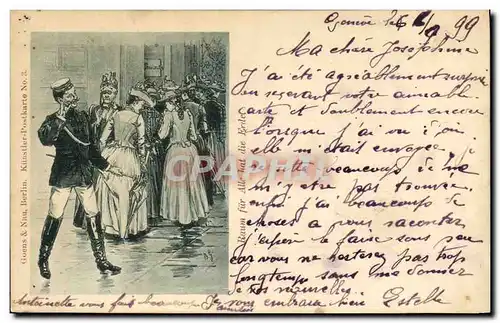 Goens & Nau, Berlin. Künstler-Postkarte No. 3.
Raum für Alle hat die Erde!
CPA
Genève le 6/2 99
Ma chère Joséphine
J'ai été agréablement surprise
en recevant votre aimable
carte et doublement encore
lorsque j'ai vu d'où
elle m'était envoyée
beaucoup de ne
m'y être pas trouvée
enfin j'ai beaucoup de
choses à vous raconter
j'espère le faire sous peu
car vous ne resterez pas trop
longtemps sans me donner
de vos nouvelles.
Je vous embrasse bien
Estelle
Antoinette vous fait beaucoup